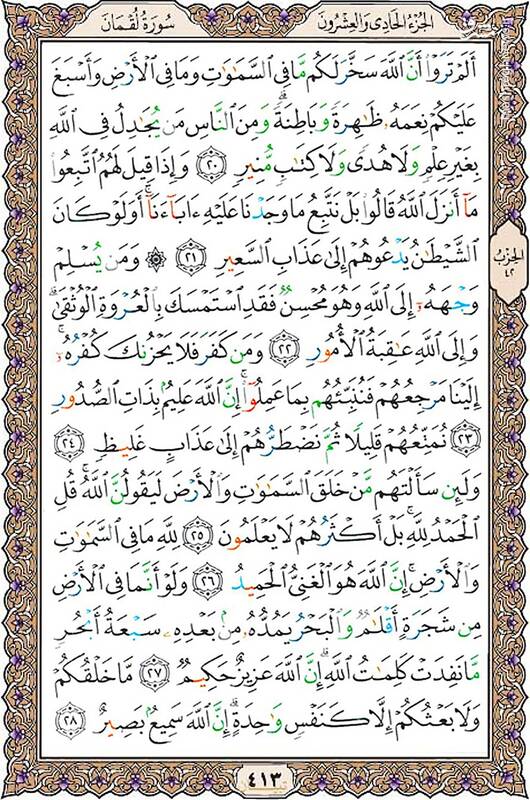 الجزء الحادي والعشرون
سورة لقمان
أَلَمْ تَرَوْا أَنَّ ٱللَّهَ سَخَّرَ لَكُم مَّا فِي ٱلسَّمَٰوَٰتِ وَمَا فِي ٱلْأَرْضِ وَأَسْبَغَ
عَلَيْكُمْ نِعَمَهُۥ ظَٰهِرَةً وَبَاطِنَةً ۗ وَمِنَ ٱلنَّاسِ مَن يُجَٰدِلُ فِي ٱللَّهِ
بِغَيْرِ عِلْمٍ وَلَا هُدًى وَلَا كِتَٰبٍ مُّنِيرٍ ٢٠ وَإِذَا قِيلَ لَهُمُ ٱتَّبِعُوا
مَآ أَنزَلَ ٱللَّهُ قَالُوا بَلْ نَتَّبِعُ مَا وَجَدْنَا عَلَيْهِ ءَابَآءَنَآ ۚ أَوَلَوْ كَانَ
ٱلشَّيْطَٰنُ يَدْعُوهُمْ إِلَىٰ عَذَابِ ٱلسَّعِيرِ ٢١ ۞ وَمَن يُسْلِمْ
وَجْهَهُۥٓ إِلَى ٱللَّهِ وَهُوَ مُحْسِنٌ فَقَدِ ٱسْتَمْسَكَ بِٱلْعُرْوَةِ ٱلْوُثْقَىٰ ۗ
وَإِلَى ٱللَّهِ عَٰقِبَةُ ٱلْأُمُورِ ٢٢ وَمَن كَفَرَ فَلَا يَحْزُنكَ كُفْرُهُۥٓ ۚ
إِلَيْنَا مَرْجِعُهُمْ فَنُنَبِّئُهُم بِمَا عَمِلُوٓا ۚ إِنَّ ٱللَّهَ عَلِيمٌۢ بِذَاتِ ٱلصُّدُورِ
٢٣ نُمَتِّعُهُمْ قَلِيلًا ثُمَّ نَضْطَرُّهُمْ إِلَىٰ عَذَابٍ غَلِيظٍ ٢٤
وَلَئِن سَأَلْتَهُم مَّنْ خَلَقَ ٱلسَّمَٰوَٰتِ وَٱلْأَرْضَ لَيَقُولُنَّ ٱللَّهُ ۚ قُلِ
ٱلْحَمْدُ لِلَّهِ ۚ بَلْ أَكْثَرُهُمْ لَا يَعْلَمُونَ ٢٥ لِلَّهِ مَا فِي ٱلسَّمَٰوَٰتِ
وَٱلْأَرْضِ ۚ إِنَّ ٱللَّهَ هُوَ ٱلْغَنِيُّ ٱلْحَمِيدُ ٢٦ وَلَوْ أَنَّمَا فِي ٱلْأَرْضِ
مِن شَجَرَةٍ أَقْلَٰمٌ وَٱلْبَحْرُ يَمُدُّهُۥ مِنۢ بَعْدِهِۦ سَبْعَةُ أَبْحُرٍ
مَّا نَفِدَتْ كَلِمَٰتُ ٱللَّهِ ۗ إِنَّ ٱللَّهَ عَزِيزٌ حَكِيمٌ ٢٧ مَّا خَلْقُكُمْ
وَلَا بَعْثُكُمْ إِلَّا كَنَفْسٍ وَٰحِدَةٍ ۗ إِنَّ ٱللَّهَ سَمِيعٌۢ بَصِيرٌ ٢٨
الحزب
٤٢
٤١٣